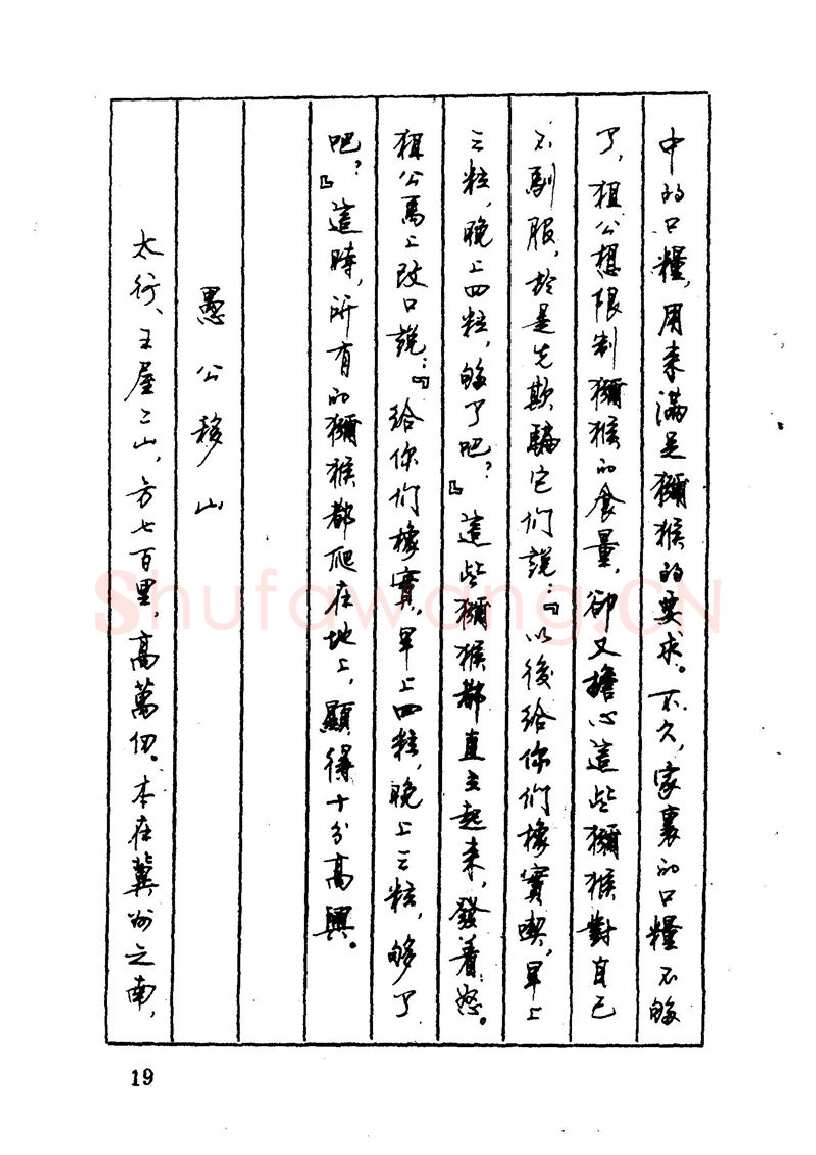 中的口糧，用来滿足獼猴的要求。不久，家裏的口糧不够
了，狙公想限制獼猴的食量，卻又擔心這些獼猴對自己
不馴服，於是先欺騙它們説：『以後給你們橡實喫，早上
三粒，晚上四粒，够了吧？』這些獼猴都直立起来，發着怒。
狙公馬上改口説：『給你們橡實，早上四粒，晚上三粒，够了
吧？』這時，所有的獼猴都爬在地上，顯得十分高興。
愚公移山
太行、王屋二山，方七百里，高萬仞。本在冀州之南，
19
Shufawang.CN